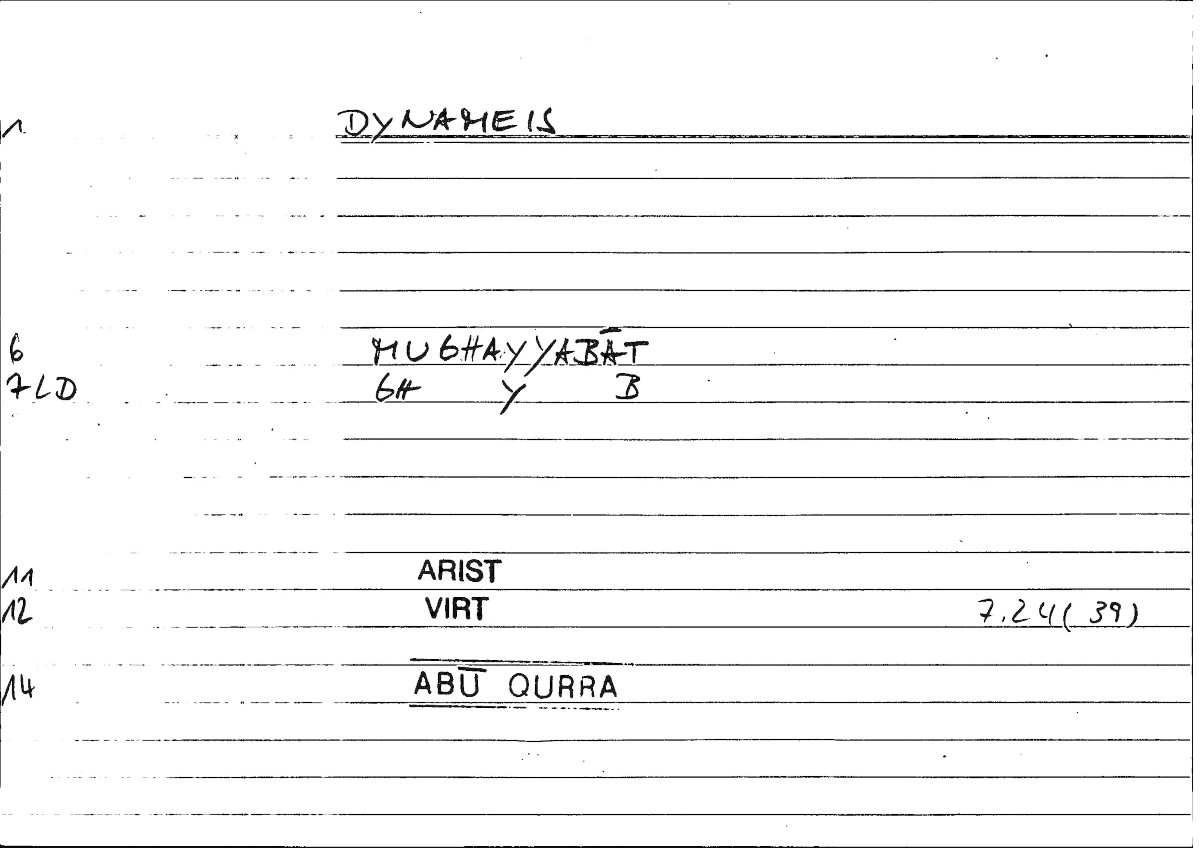 1. DYNAMEIS
6 MUGHAYYABĀT
7LD GH Y B
11 ARIST
12 VIRT 7.24(39)
14 ABŪ QURRA